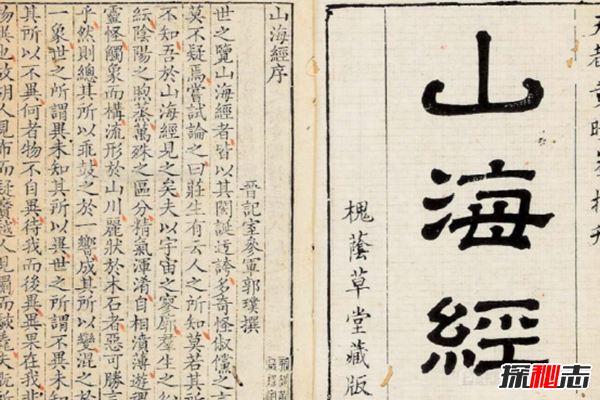 山海經
槐蔭草堂藏版
山海經序
晉記室參軍郭璞撰
世之覽山海經者皆以其閎誕迂誇多奇怪俶儻之言
莫不疑焉嘗試論之曰莊生有云人之所知莫若其所
不知吾於山海經見之矣夫以宇宙之寥廓羣生之紛
紜陰陽之煦蒸萬殊之區分精氣渾淆自相濆薄遊
靈怪觸象而構流形於山川麗狀於木石者惡可勝言
乎然則總其所以乖鼓之於一響成其所以變混之於
一象世之所謂異未知其所以異世之所謂不異未知
其所以不異何者物不自異待我而後異異果在我非
物異也故胡人見布而疑黂越人見罽而駭毳夫翫所
探秘志